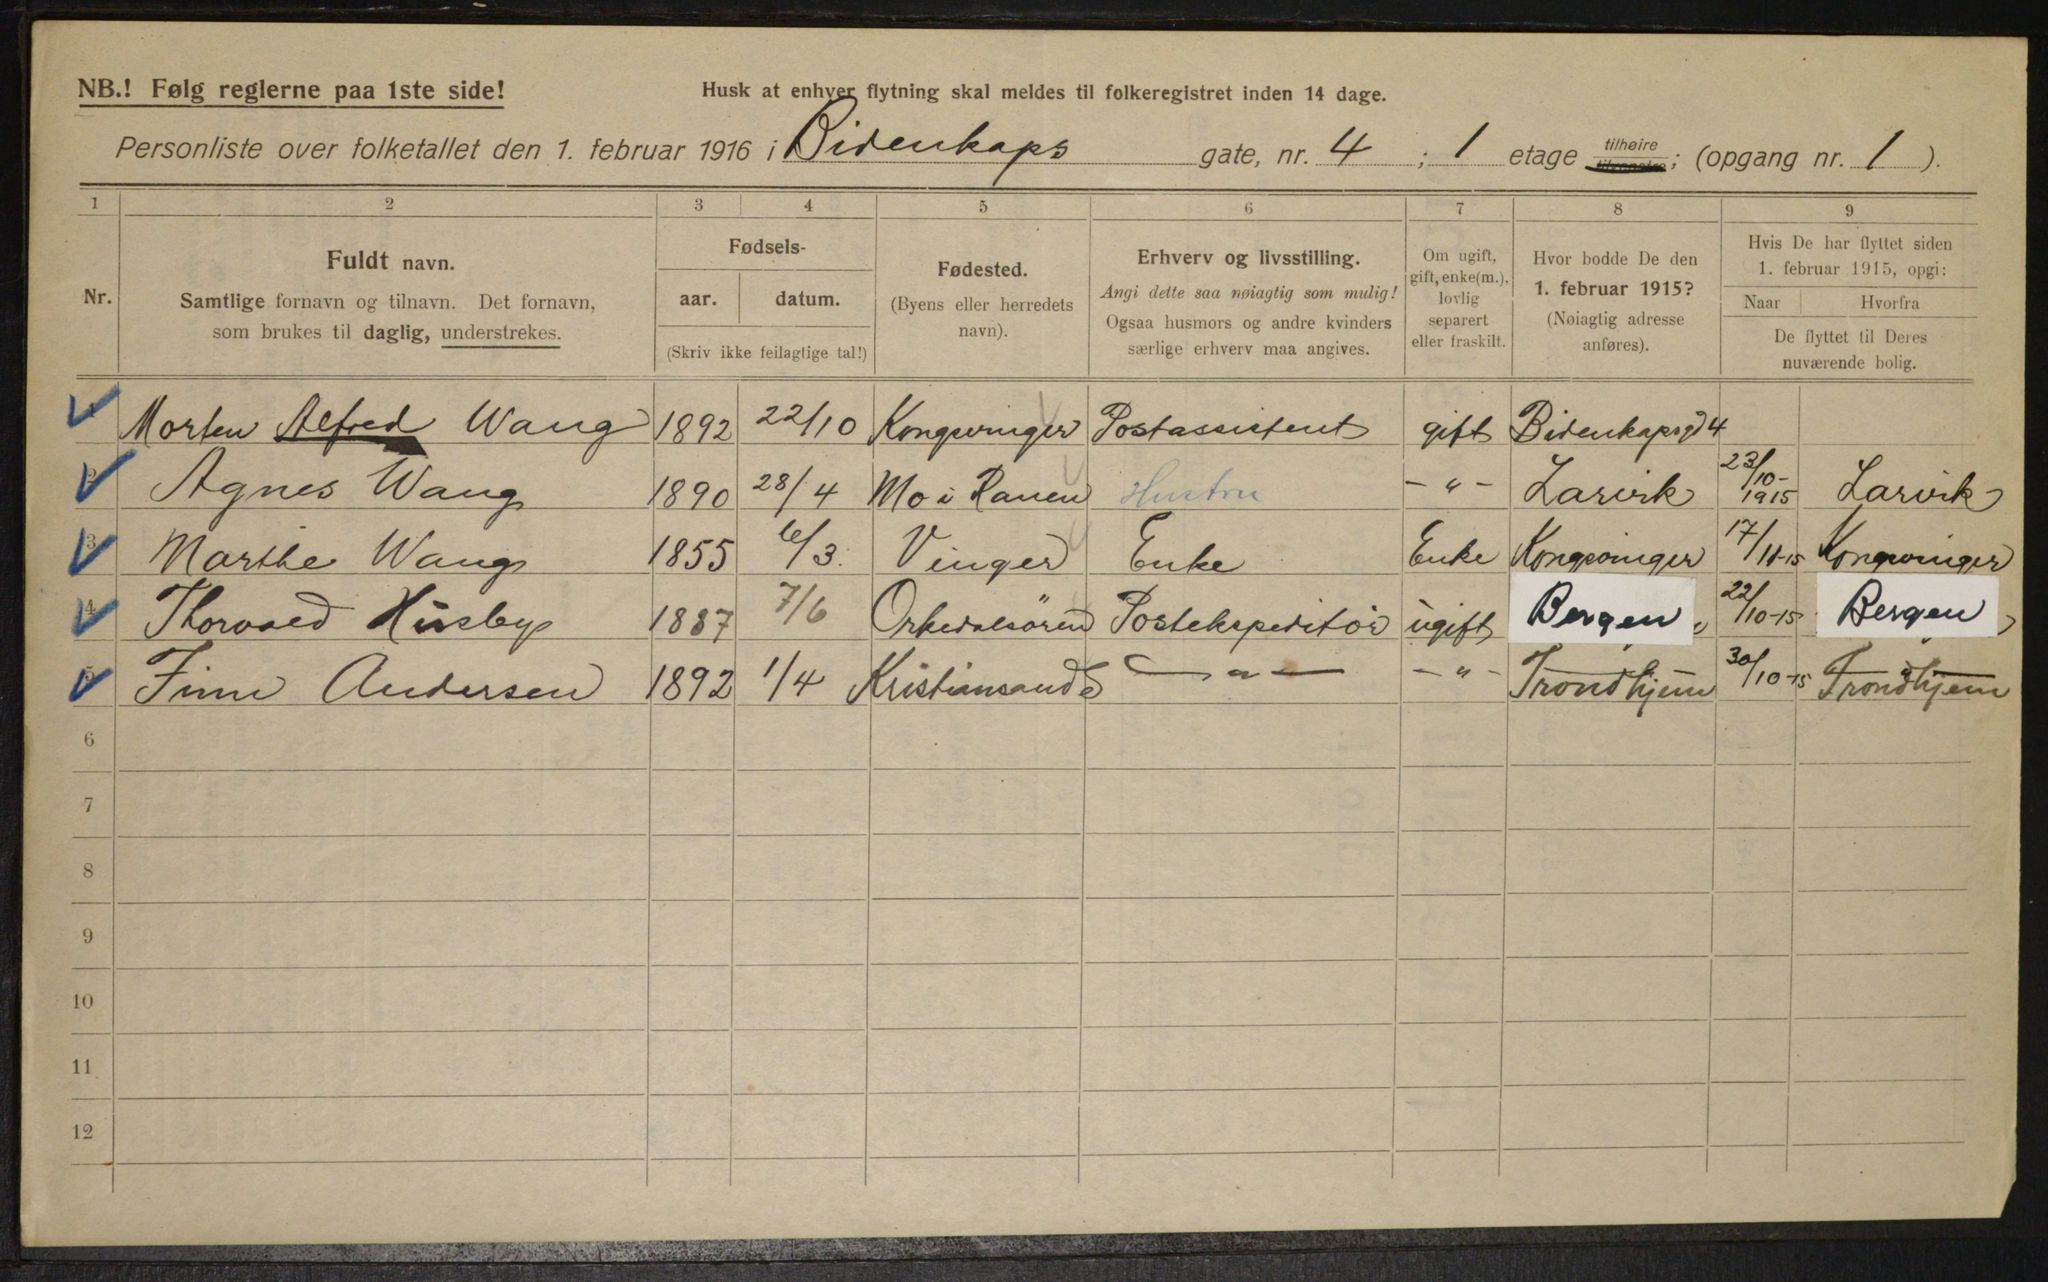 NB.! Følg reglerne paa 1ste side!
Husk at enhver flytning skal meldes til folkeregistret inden 14 dage.
Personliste over folketallet den 1. februar 1916 i Bidenkaps gate, nr. 4; 1 etage tilhøire tilvenstre; (opgang nr. 1).
1 2 3 4 5 6 7 8 9
Nr.
Fuldt navn.
Samtlige fornavn og tilnavn. Det fornavn,
som brukes til daglig, understrekes.
Fødsels-
aar. datum.
(Skriv ikke feilagtige tal!)
Fødested.
(Byens eller herredets
navn).
Erhverv og livsstilling.
Angi dette saa nøiagtig som mulig!
Ogsaa husmors og andre kvinders
særlige erhverv maa angives.
Om ugift,
gift, enke(m.),
lovlig
separert
eller fraskilt.
Hvor bodde De den
1. februar 1915?
(Nøiagtig adresse
anføres).
Hvis De har flyttet siden
1. februar 1915, opgi:
Naar Hvorfra
De flyttet til Deres
nuværende bolig.
Morten Alfred Wang 1892 22/10 Kongsvinger Postassistent gift Bidenkapsgd 4
2 Agnes Wang 1890 28/4 Mo i Ranen Hustru -"- Larvik 23/10-1915 Larvik
3 Marthe Wang 1855 6/3. Vinger Enke Enke Kongsvinger 17/11-15 Kongsvinger
4 Thorvald Husby 1887 7/6 Orkedalsören Postekspeditör ugift Bergen 22/10-15 Bergen
5 Finn Andersen 1892 1/4 Kristiansand S -"- -"- Trondhjem 30/10-15 Trondhjem
6
7
8
9
10
11
12